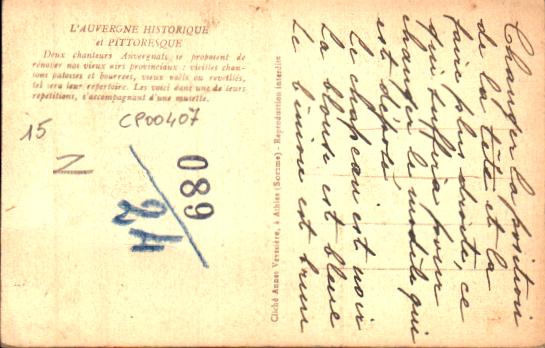 L'AUVERGNE HISTORIQUE
et PITTORESQUE
Deux chanteurs Auvergnats, se proposent de
rénover nos vieux airs provinciaux : vieilles chan-
sons patoises et bourrées, vieux noëls ou reveillés,
tel sera leur répertoire. Les voici dans une de leurs
répétitions, s'accompagnant d'une musette.
15
CP00407
N
089
2A
Cliché Annet Veyssière, à Athies (Somme) - Reproduction interdite
Changer la position
de la tête et la
faire plus droite, ce
qui suffira pour
changer le modèle qui
est déposé
Le chapeau est noir
La blouse est bleue
Le binion est brun